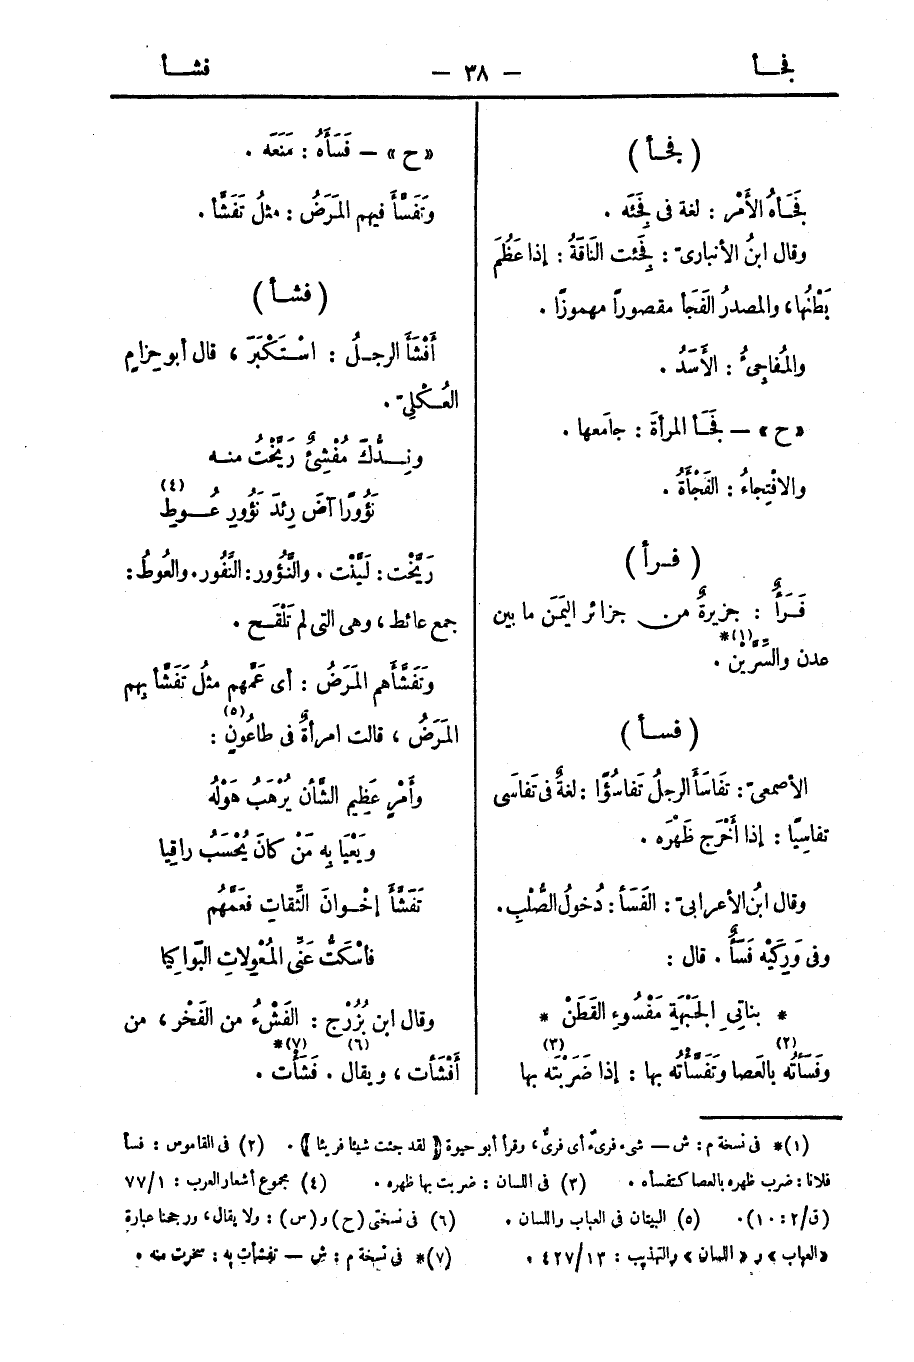 فجأ — ٣٨ — فشأ
( فجأ )
فَجَأهُ الأَمْر : لغة فى فَجِئَه .
وقال ابنُ الأنبارىّ : فَجِئت النَاقَةُ : إذا عَظُمَ
بَطْنُها، والمصدرُ الفَجَأ مقصوراً مهموزًا .
والمُفاجِئُ : الأَسَدُ .
«ح» — فَجَأَ المرأةَ : جامَعها .
والافْتِجاءُ : الفَجْأَةُ .
( فرأ )
فَرَأٌ : جزيرةٌ من جزائر اليَمَن ما بين
عدن والسِّرَّيْن (١)* .
( فسأ )
الأصمعىّ : تَفاسَأَ الرجلُ تَفاسُؤًا : لغةٌ فى تَفاسَى
تفاسِيًا : إذا أَخْرَج ظَهْرَه .
وقال ابنُ الأعرابىّ : الفَسَأ : دُخولُ الصُّلْبِ .
وفى وَرِكَيْه فَسَأٌ . قال :
* بناتِى الجَبْهَةِ مَفْسُوءِ القَطَنْ *
وفَسَأتُه (٢) بالعَصا وتَفَسَّأتُه بها : إذا ضَرَبْتَه (٣) بها
«ح» — فَسَأَهُ : مَنَعَه .
وتَفَسَّأَ فيهم المَرَضُ : مثلُ تَفَشَّأ .
( فشأ )
أَفْشَأَ الرجلُ : اسْتَكْبَرَ ، قال أبو حِزامٍ
العُكْلِىّ .
ونِدُّكَ مُفْشِئٌ رَيَّخْتُ منه
نَؤُورًا آضَ رِئدَ نَؤُورِ عُوطِ (٤)
رَيَّخْت : لَيَّنْت . والنَّؤُور : النَّفُور . والعُوطُ :
جمع عائط ، وهى التى لم تَلْقَح .
وتَفَشَّأهم المَرَضُ : أى عَمَّهم مثلُ تَفَشَّأ بِهم
المَرَضُ ، قالت امرأةٌ فى طاعُونٍ (٥) :
وأَمْرٍ عَظِيمِ الشَّأْنِ يُرْهَبُ هَوْلُه
ويَعْيَا بِه مَنْ كانَ يُحْسَبُ راقِيا
تَفَشَّأَ إخْوانَ الثِّقاتِ فعَمَّهُم
فأَسْكَتُّ عَنِّى المُعْوِلاتِ البَواكِيا
وقال ابن بُزُرْج : الفَشْءُ من الفَخْر ، من
أَفْشَأْت ، ويقال (٦) . فَشَأْت (٧)* .
(١)* فى نسخة م : ش — شىء فرىءٌ أى فرىٌّ ، وقرأ أبو حيوة ﴿ لقد جئت شيئا فريئا ﴾ . (٢) فى القاموس : فسأ
فلانا : ضرب ظهره بالعصا كتفسأه . (٣) فى اللسان : ضربت بها ظهره . (٤) مجموع أشعار العرب : ٧٧/١
(ق/٢ : ١٠) . (٥) البيتان فى العباب واللسان . (٦) فى نسختى (ح) و(س) : ولا يقال ، ورجحنا عبارة
«العباب» و «اللسان» والتهذيب : ٤٢٧/١٣ . (٧)* فى نسخة م : ش — تفشأت به : سخرت منه .